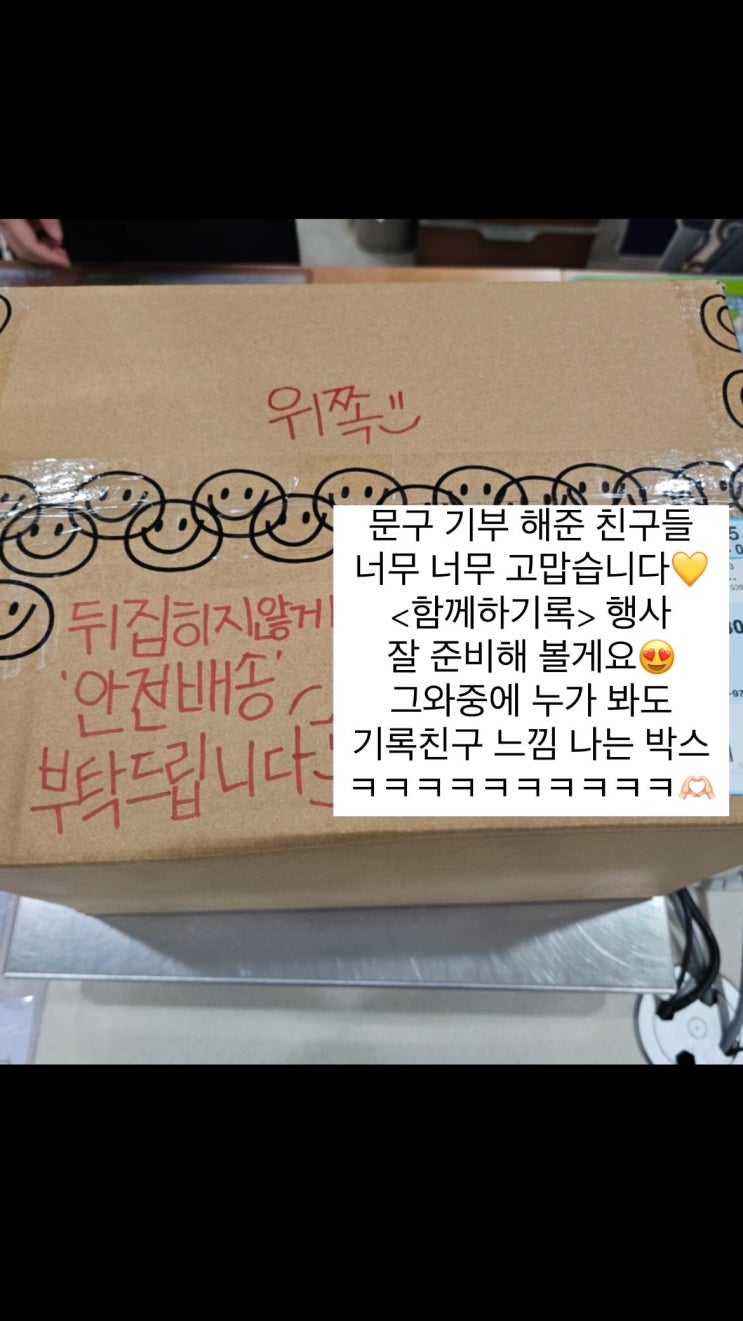 위쪽
뒤집히지않게
'안전배송'
부탁드립니다
문구 기부 해준 친구들
너무 너무 고맙습니다💛
<함께하기록> 행사
잘 준비해 볼게요😍
그와중에 누가 봐도
기록친구 느낌 나는 박스
ㅋㅋㅋㅋㅋㅋㅋㅋㅋㅋㅋ🫶🏻